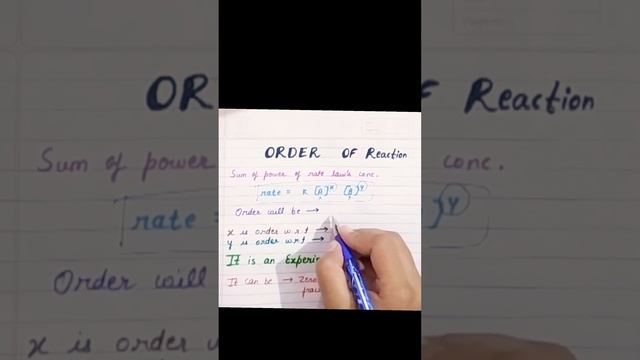 ORDER OF Reaction
Sum of power of rate law's conc.
rate = K [A]^x [B]^y
Order will be →
x is order w.r.t →
y is order w.r.t →
It is an Experi
It can be → Zero
frac